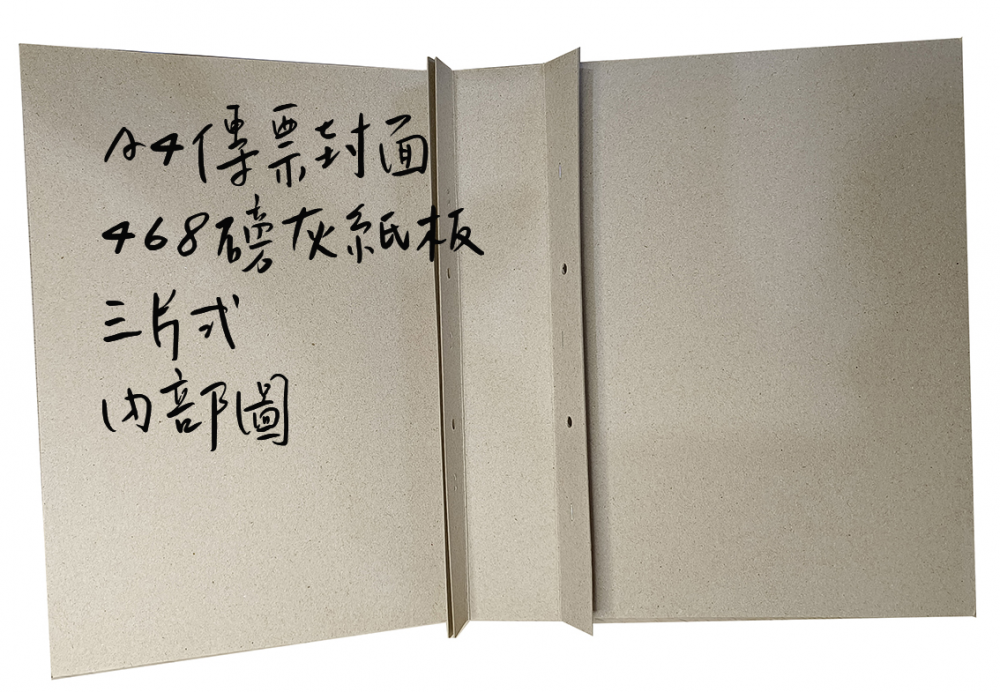 A4傳票封面
468磅灰紙板
三片式
內部圖